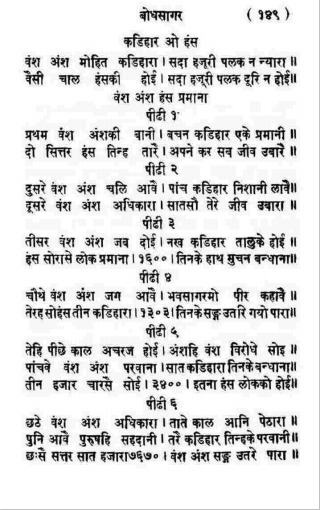 बोधसागर ( १४९ )
कडिहार ओ हंस
वंश अंश मोहित कडिहारा। सदा हजूरी पलक न न्यारा॥
वैसी चाल हंसकी होई। सदा हजूरी पलक दूरि न होई॥
वंश अंश हंस प्रमाना
पीढी १
प्रथम वंश अंशकी बानी। बचन कडिहार एके प्रमानी॥
दो सित्तर हंस तिन्ह तारैं। अपने कर सब जीव उबारैं॥
पीढी २
दुसरे वंश अंश चलि आवै। पांच कडिहार निशानी लावै॥
दूसरे वंश अंश अधिकारा। सातसौ तेरे जीव उबारा॥
पीढी ३
तीसर वंश अंश जब दोई। नख कडिहार तालुके होई॥
हंस सोरासे लोक प्रमाना। १६००। तिनके हाथ मुचन बन्धाना॥
पीढी ४
चौथे वंश अंश जग आवै। भवसागरमो पीर कहावै॥
तेरह सोहंस तीन कडिहारा। १३०३। तिनके सङ्ग उतरि गयो पारा॥
पीढी ५
तेहि पीछे काल अचरज होई। अंशहि वंश विरोधे सोइ॥
पांचवे वंश अंश परवाना। सात कडिहारा तिनके बन्धाना॥
तीन हजार चारसे सोई। ३४००। इतना हंस लोकको होई॥
पीढी ६
छठे वंश अंश अधिकारा। ताते काल आनि पेठारा॥
पुनि आवै पुरुषहि सहदानी। तरै कडिहार तिन्हके परवानी॥
छःसै सत्तर सात हजारा७६७०। वंश अंश सङ्ग उतरे पारा॥